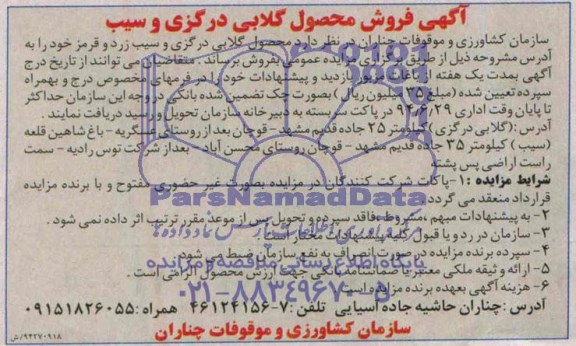 آگهی فروش محصول گلابی درگزی و سیب
سازمان کشاورزی و موقوفات چناران در نظر دارد محصول گلابی درگزی و سیب زرد و قرمز خود را به
آدرس مشروحه ذیل از طریق برگزاری مزایده عمومی بفروش برساند . متقاضیان می توانند از تاریخ درج
آگهی بمدت یک هفته از باغات مزبور بازدید و پیشنهادات خود را در فرمهای مخصوص درج و بهمراه
سپرده تعیین شده (مبلغ ۳۵ میلیون ریال) بصورت چک تضمین شده بانکی در وجه این سازمان حداکثر
تا پایان وقت اداری در پاکت سر بسته به دبیرخانه سازمان تحویل و رسید دریافت نمایند .
آدرس:(گلابی درگزی) کیلومتر ۲۵ جاده قدیم مشهد - قوچان بعد از روستای عسگریه - باغ شاهین قلعه
(سیب ) کیلومتر ۳۵ جاده قدیم مشهد - قوچان روستای محسن آباد - بعد از شرکت توس رادیه - سمت
راست اراضی پس پشته
شرایط مزایده : ۱-پاکات شرکت کنندگان در مزایده بصورت غیر حضوری مفتوح و با برنده مزایده
قرارداد منعقد می گردد
۲- به پیشنهادات مبهم ،مشروط ،فاقد سپرده و تحویل پس از موعد مقرر ترتیب اثر داده نمی شود .
۳- سازمان در رد و یا قبول کلیه پیشنهادات مختار است .
۴- سپرده برنده مزایده در صورت انصراف به نفع سازمان ضبط می شود
۵- ارائه و ثیقه ملکی معتبر یا ضمانتنامه بانکی جهت ارزش محصول الزامی است .
۶- هزینه آگهی بعهده برنده مزایده است
آدرس: چناران حاشیه جاده آسیایی تلفن : ۷-۴۶۱۲۴۱۵۶ همراه : ۰۹۱۵۱۸۲۶۰۵۵
سازمان کشاورزی و موقوفات چناران
۹۴۲۷۰۹۱۸/ش
ParsNamadData
پایگاه اطلاع رسانی مناقصه و مزایده
۰۲۱-۸۸۳۴۹۶۷۰-۵